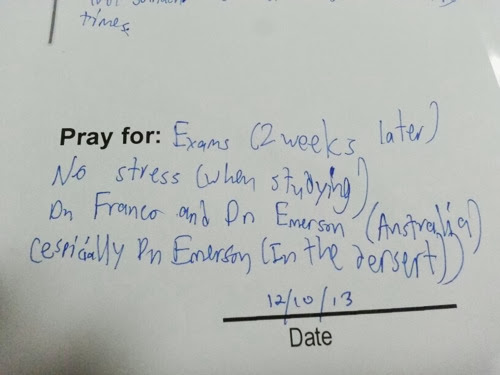 times.
Pray for: Exams (2 weeks later)
No stress (when studying)
Dn Franco and Dn Emerson (Australia)
(espicially Dn Emerson (In the dersert))
12/10/13
Date